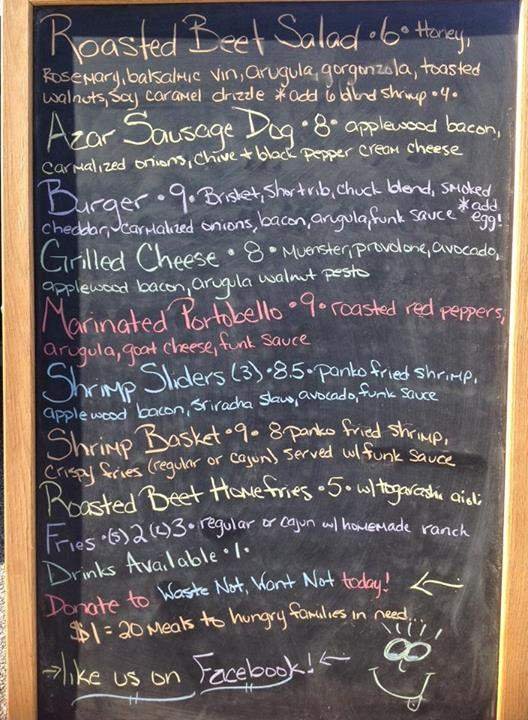 Roasted Beet Salad • 6 • Honey,
Rosemary, balsalmic vin, arugula, gorgonzola, toasted
walnuts, soy caramel drizzle * add 6 blknd shrimp • 4 •
Azar Sausage Dog • 8 • applewood bacon,
carmalized onions, chive + black pepper cream cheese
Burger • 9 • Brisket, short rib, chuck blend, smoked
cheddar, carmalized onions, bacon, arugula, funk sauce * add egg!
Grilled Cheese • 8 • Muenster, provolone, avocado,
applewood bacon, arugula walnut pesto
Marinated Portobello • 9 • roasted red peppers,
arugula, goat cheese, funk sauce
Shrimp Sliders (3) • 8.5 • panko fried shrimp,
applewood bacon, sriracha slaw, avocado, funk sauce
Shrimp Basket • 9 • 8 panko fried shrimp,
crispy fries (regular or cajun) served w/ funk sauce
Roasted Beet Homefries • 5 • w/ togarashi aioli
Fries • (s) 2 (L) 3 • regular or cajun w/ homemade ranch
Drinks Available • 1 •
Donate to Waste Not, Want Not today!
$1 = 20 meals to hungry families in need...
like us on Facebook!